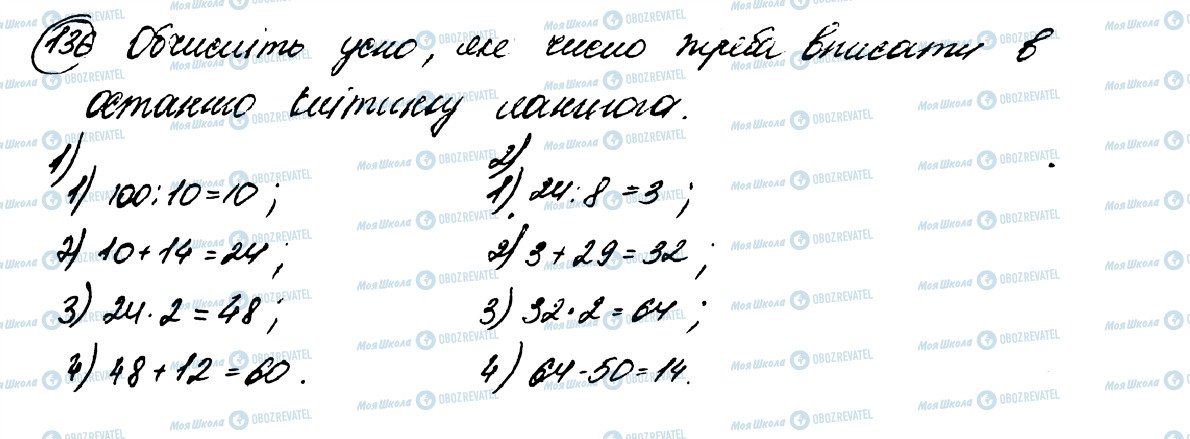 136 Обчисліть усно, яке число треба вписати в
останню клітинку ланцюга.
1)
1) 100:10=10;
2) 10+14=24;
3) 24·2=48;
4) 48+12=60.
2)
1) 24:8=3;
2) 3+29=32;
3) 32·2=64;
4) 64-50=14.